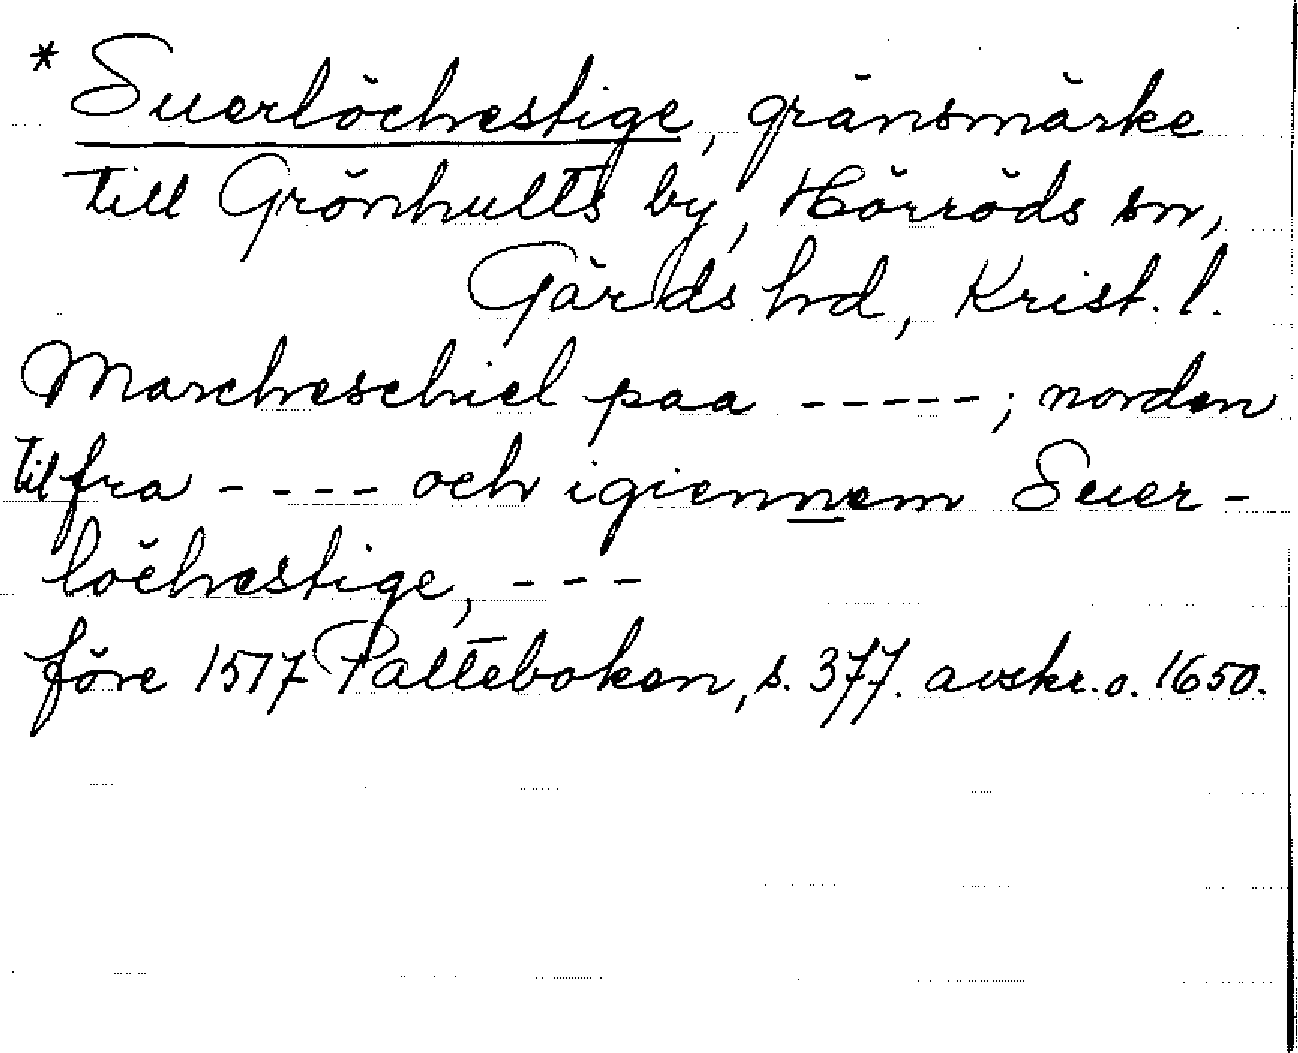 * Suerlöchestige, gränsmärke
till Grönhults by, Hörröds sn,
Gärds hd, Krist. l.
Marcheschiel paa -----; norden
til fra ---- och igiennem Suer-
löchestige, ---
före 1517 Palteboken, s. 377. avskr. o. 1650.